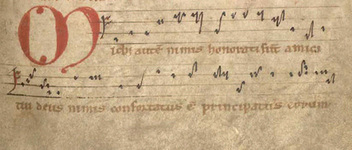 M ichi autē nimis honorati sūt amici
tui deus nimis confortatus ē principatus eorum